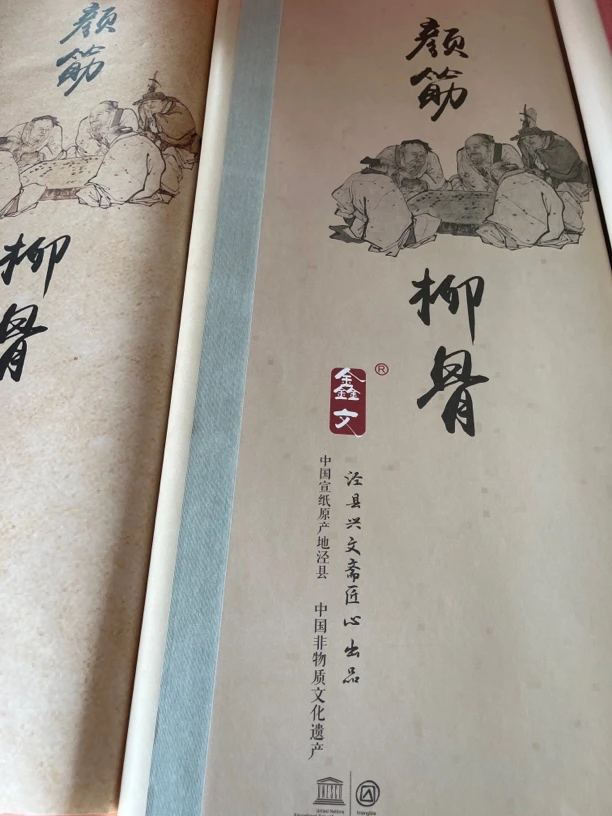 颜筋
柳骨
颜筋
柳骨
鑫文
®
泾县兴文斋匠心出品
中国宣纸原产地泾县 中国非物质文化遗产
UNESCO
United Nations